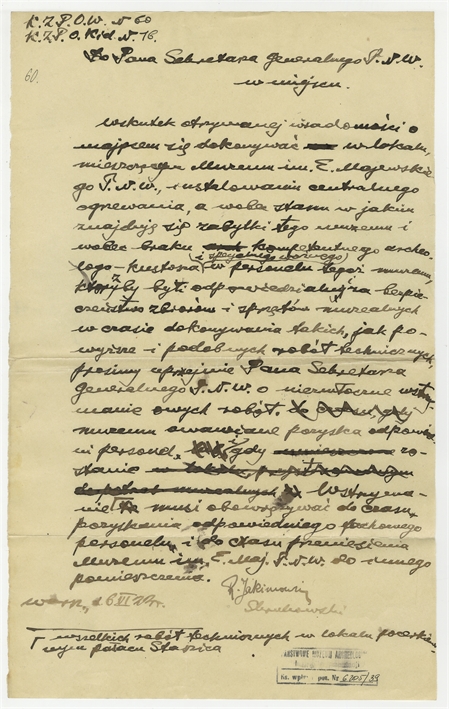 K.Z.P.O.W. N 60
K.Z.P.O. Kid. N. 16.
60.
Do Pana Sekretarza Generalnego T.N.W.
w miejscu.
Wskutek otrzymanej wiadomości o
mającem się dokonywać w lokalu,
mieszczącym Muzeum im. E. Majewskie
go T.N.W., instalowaniu centralnego
ogrzewania, a wobec stanu w jakim
znajdują się zabytki tego muzeum i
wobec braku kompetentnego archeo-
i specjalnego
loga-kustosza w personelu tegoż muzeum,
którzy by byli odpowiedzialni za bezpie
czeństwo zbiorów i sprzętów muzealnych
w czasie dokonywania takich, jak po-
wyższe i podobnych robót technicznych,
prosimy uprzejmie Pana Sekretarza
Generalnego T.N.W. o niezwłoczne wstrzy
manie owych robót. do czasu, gdy
muzeum pozyska odpowie
ni personel, i gdy zo-
stanie
Wstrzyma-
nie musi obowiązywać do czasu
pozyskania odpowiedniego fachowego
personelu i do czasu przeniesienia
Muzeum im. E. Maj. T.N.W. do innego
pomieszczenia.
R. Jakimowicz
Warsz. d. 6 VI 29 r.
wszelkich robót technicznych w lokalu
wym pałacu Staszica
PAŃSTWOWE MUZEUM
Ks. wpływ. poz. Nr 6205/39